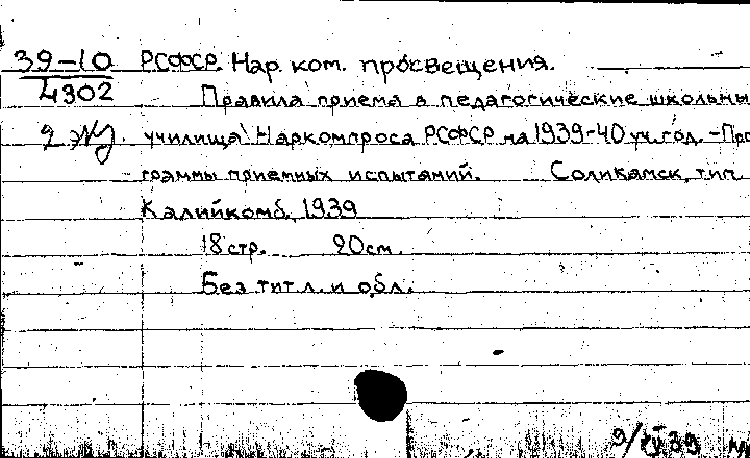 39-10 РСФСР. Нар. ком. просвещения.
4902 Правила приема в педагогические школьны
2 экз. училища Наркомпроса РСФСР на 1939-40 уч. год. - Про
граммы приемных испытаний. Соликамск, тип.
Калийкомб., 1939
18 стр. 20 см.
Без тит. л. и обл.
39